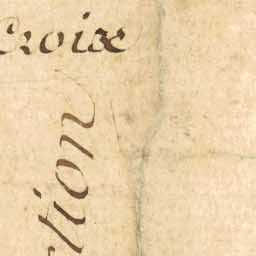 Croix
ction